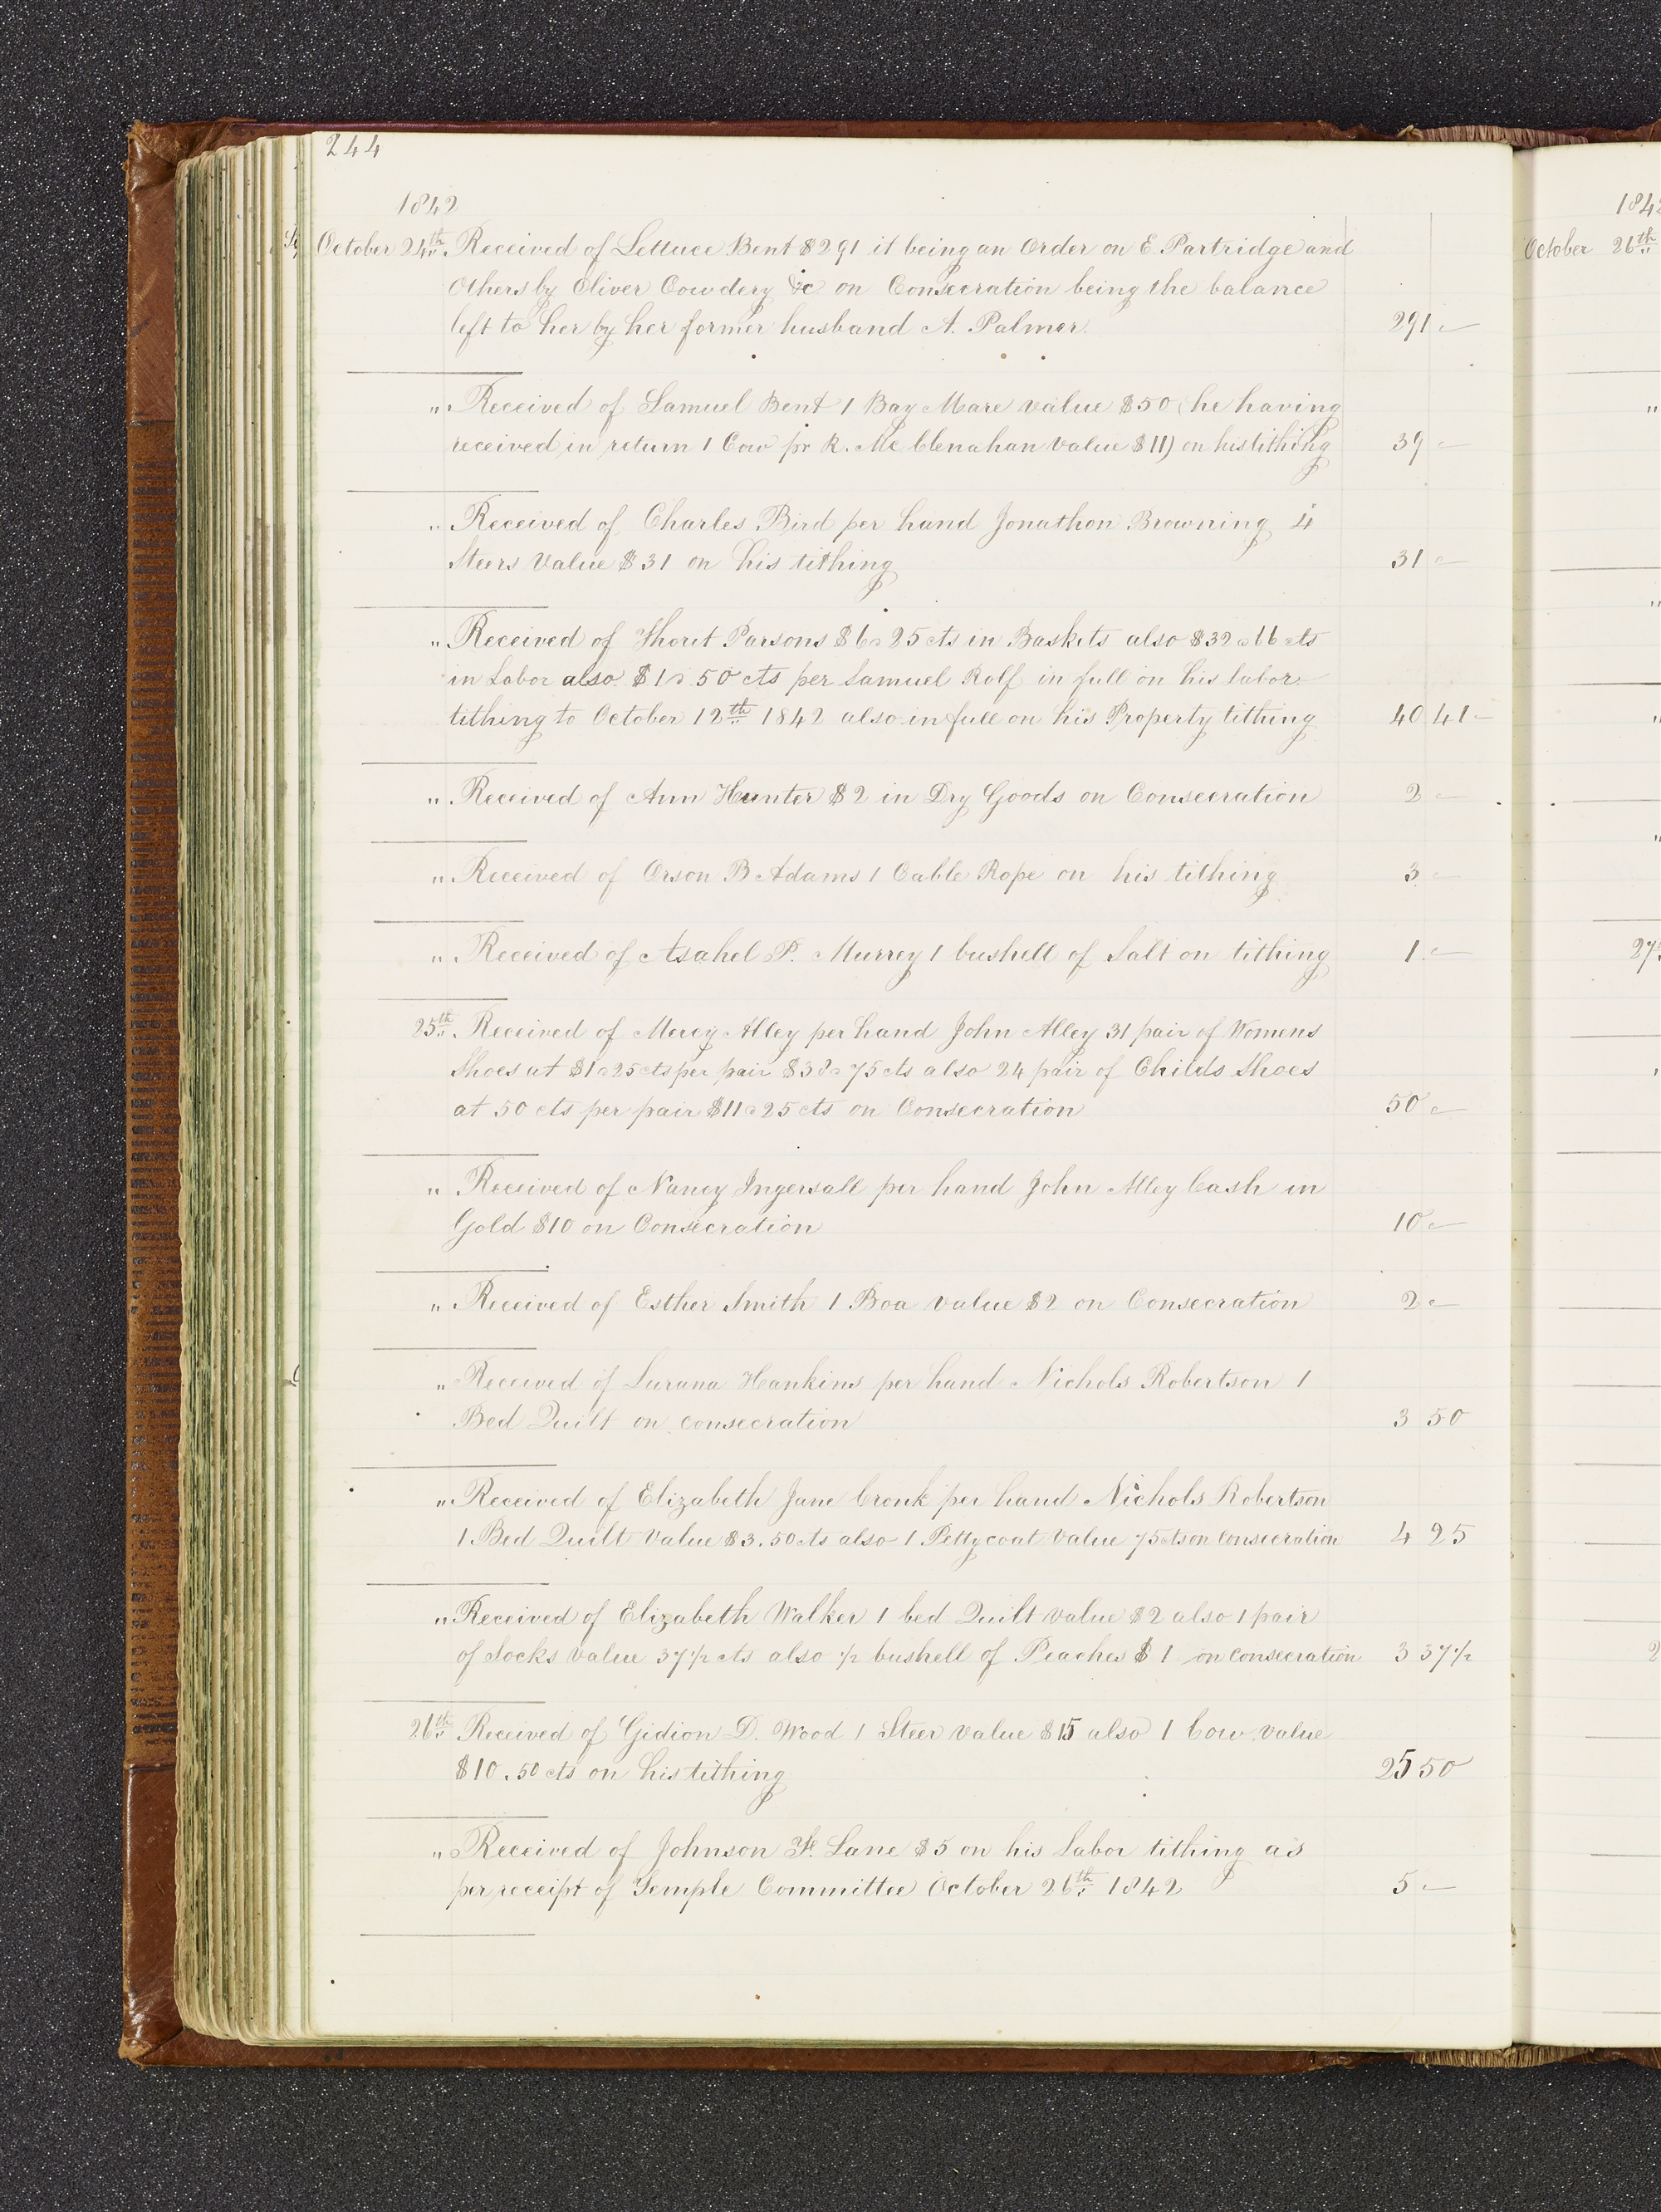 244
1842
October 24th. Received of Lettuce Bent $291 it being an Order on E. Partridge and
Others by Oliver Cowdery &c on Consecration being the balance
left to her by her former husband A. Palmer. 291 —
" Received of Samuel Bent 1 Bay Mare value $50 (he having
received in return 1 Cow pr R. Mc Clenahan value $11) on his tithing 39 —
" Received of Charles Bird per hand Jonathon Browning 4
Steers Value $31 on his tithing 31 —
" Received of Thorit Parsons $6 25 cts in Baskets also $32 66 cts
in Labor also $1 50 cts per Samuel Rolf in full on his labor
tithing to October 12th 1842 also in full on his Property tithing 40 41 —
" Received of Ann Hunter $2 in Dry Goods on Consecration 2 —
" Received of Orson B Adams 1 Cable Rope on his tithing 3 —
" Received of Asahel P. Murrey 1 bushell of Salt on tithing 1 —
25th. Received of Mercy Alley per hand John Alley 31 pair of Womens
Shoes at $1 25 cts per pair $38 75 cts also 24 pair of Childs Shoes
at 50 cts per pair $11 25 cts on Consecration 50 —
" Received of Nancy Ingersall per hand John Alley Cash in
Gold $10 on Consecration 10 —
" Received of Esther Smith 1 Boa value $2 on Consecration 2 —
" Received of Lurana Hankins per hand Nichols Robertson 1
Bed Quilt on consecration 3 50
" Received of Elizabeth Jane Cronk per hand Nichols Robertson
1 Bed Quilt Value $3.50 cts also 1 Pettycoat Value 75 cts on Consecration 4 25
" Received of Elizabeth Walker 1 bed Quilt value $2 also 1 pair
of Socks value 37 1/2 cts also 1/2 bushell of Peaches $1 on consecration 3 37 1/2
26th Received of Gidion D. Wood 1 Steer value $15 also 1 Cow value
$10.50 cts on his tithing 25 50
" Received of Johnson F. Lane $5 on his Labor tithing as
per receipt of Temple Committee October 26th 1842 5 —
184
October 26th
"
"
"
"
27
2